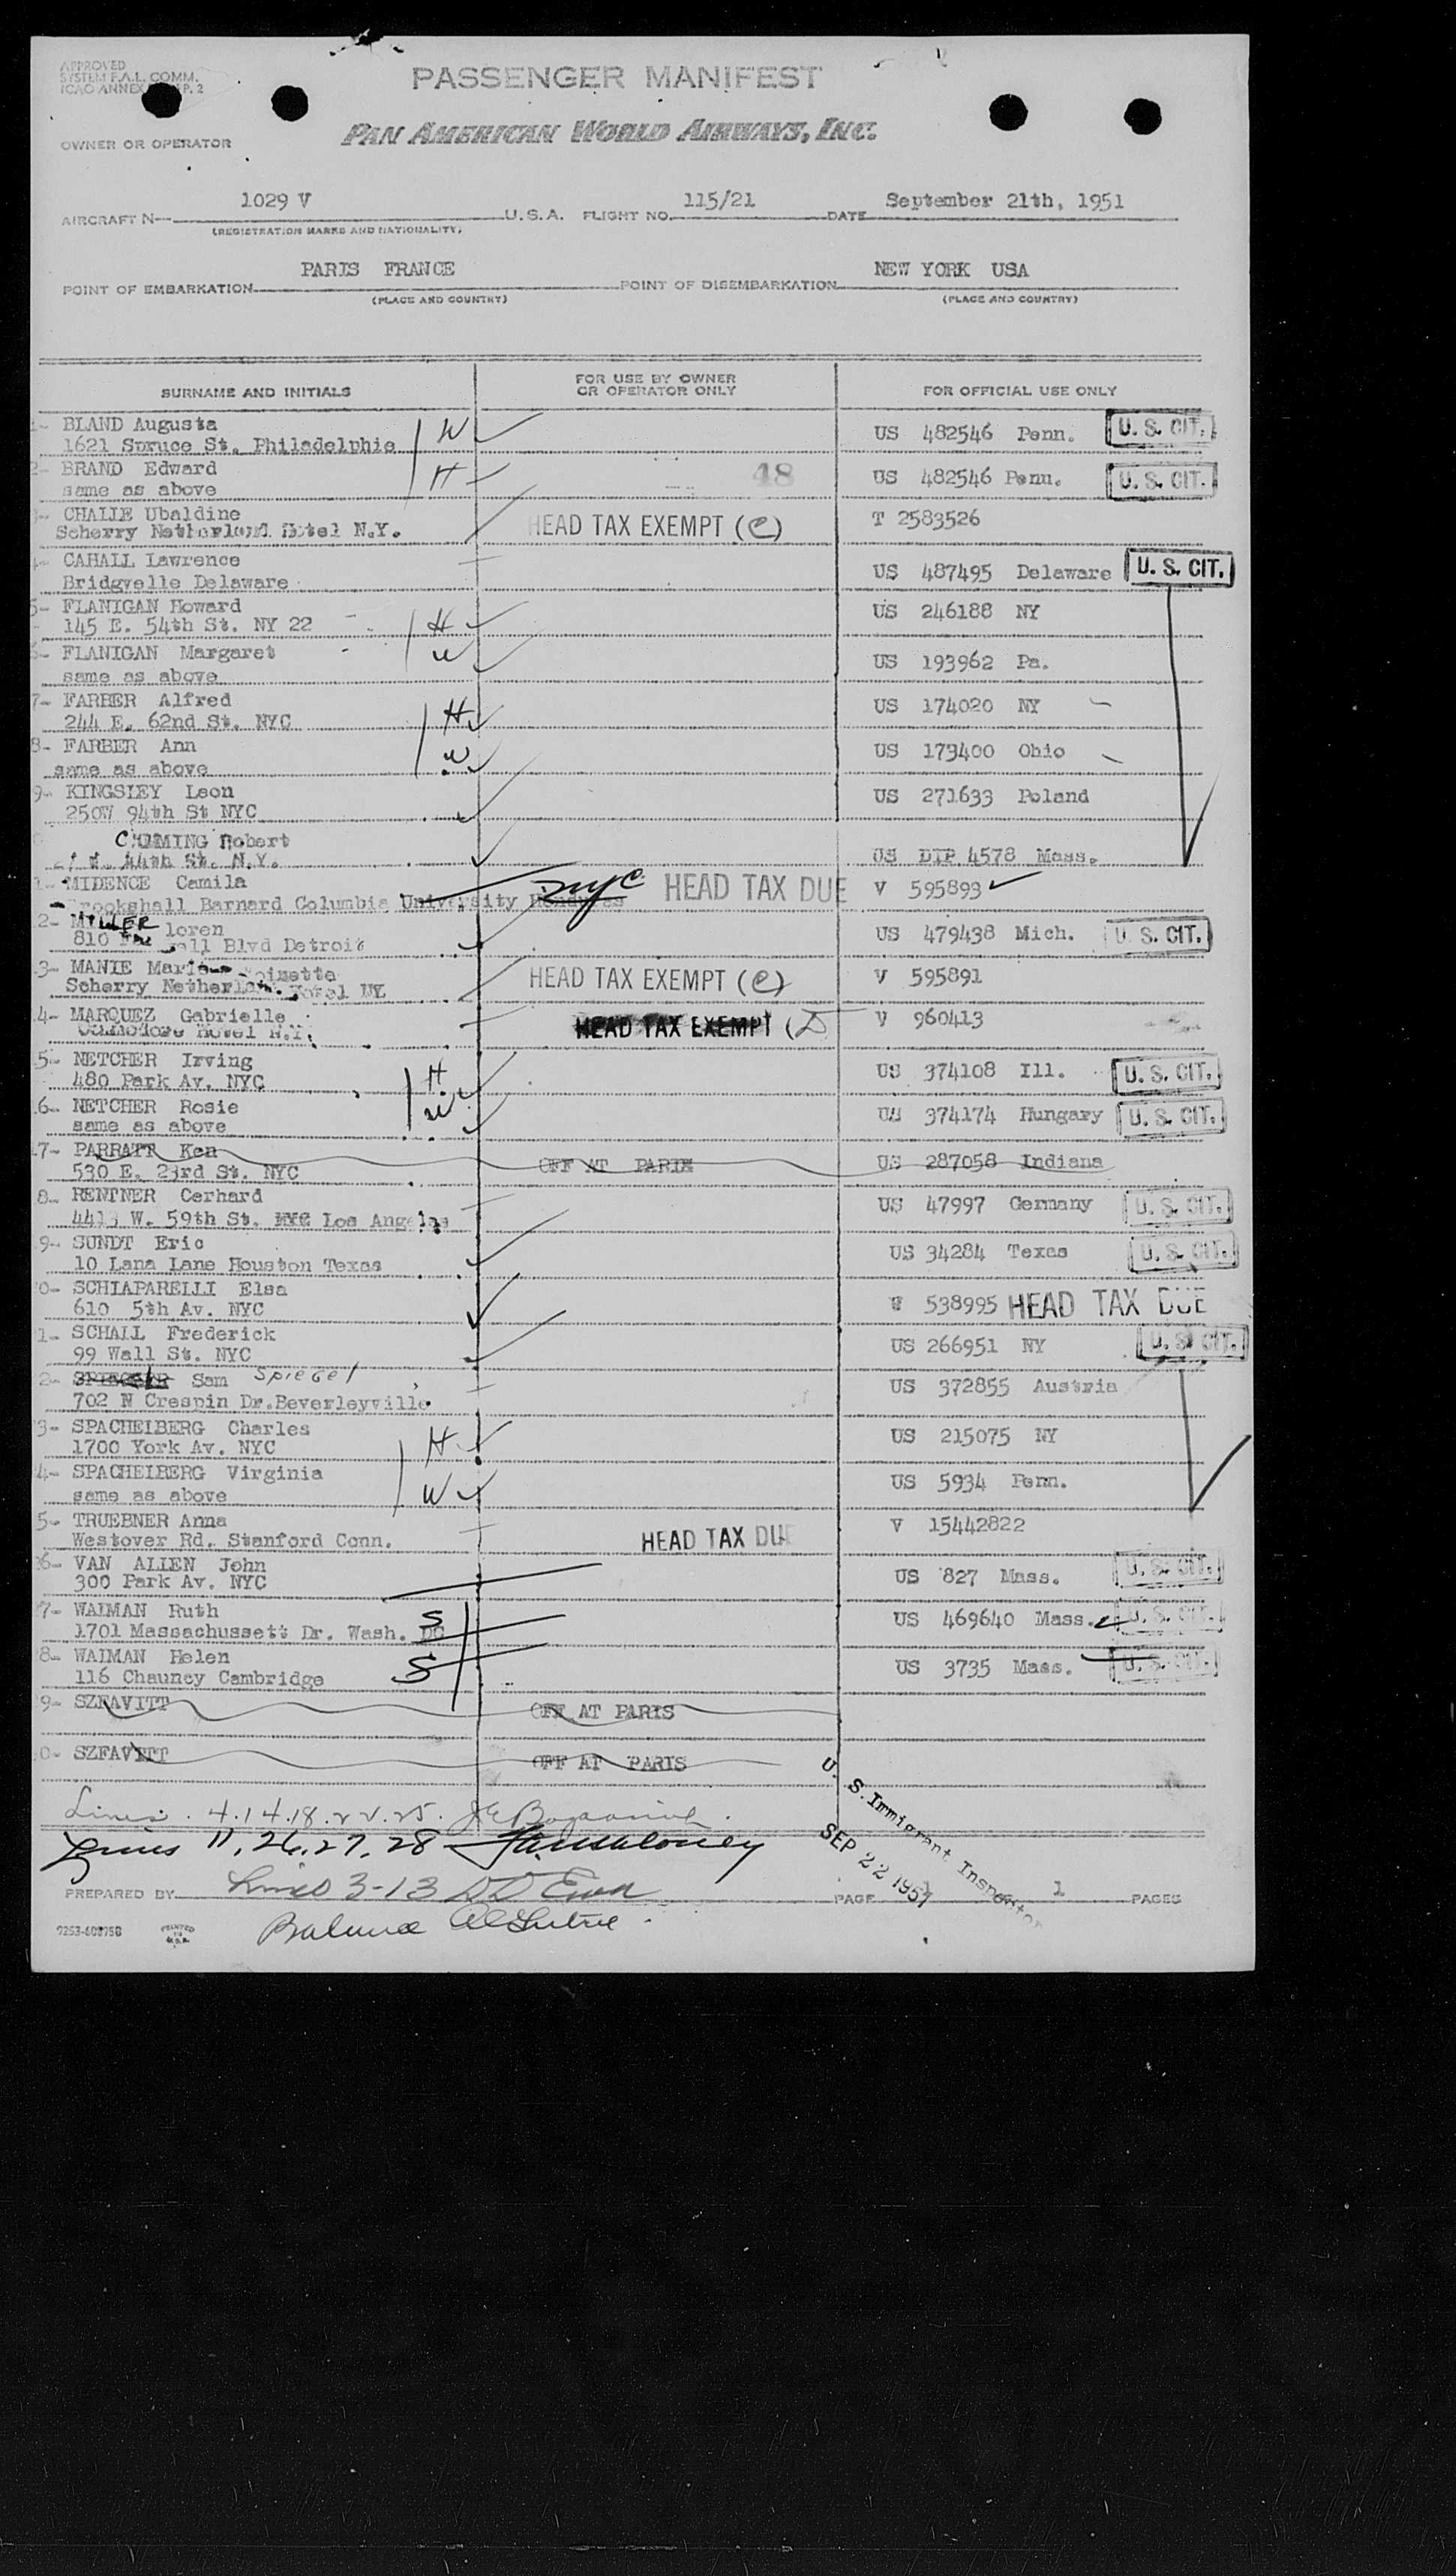 APPROVED
SYSTEM F.A.L. COMM.
ICAO ANNEX P. 2
PASSENGER MANIFEST
OWNER OR OPERATOR
PAN AMERICAN WORLD AIRWAYS, INC.
AIRCRAFT N— 1029 V U.S.A. FLIGHT NO. 115/21 DATE September 21th, 1951
(REGISTRATION MARKS AND NATIONALITY)
POINT OF EMBARKATION PARIS FRANCE POINT OF DISEMBARKATION NEW YORK USA
(PLACE AND COUNTRY) (PLACE AND COUNTRY)
SURNAME AND INITIALS FOR USE BY OWNER OR OPERATOR ONLY FOR OFFICIAL USE ONLY
BLAND Augusta W US 482546 Penn. U. S. CIT.
1621 Spruce St. Philadelphie
2- BRAND Edward H 48 US 482546 Penn. U. S. CIT.
same as above
CHALIE Ubaldine HEAD TAX EXEMPT (e) T 2583526
Scherry Netherland Hotel N.Y.
CAHALL Lawrence US 487495 Delaware U. S. CIT.
Bridgvelle Delaware
5- FLANIGAN Howard H US 246188 NY
145 E. 54th St. NY 22
FLANIGAN Margaret W US 193962 Pa.
same as above
7- FARBER Alfred H US 174020 NY
244 E. 62nd St. NYC
8- FARBER Ann W US 173400 Ohio
same as above
9- KINGSLEY Leon US 271633 Poland
250W 94th St NYC
CUMMING Robert US DIP 4578 Mass.
44th St. N.Y.
MIDENCE Camila NYC HEAD TAX DUE V 595893
Brookshall Barnard Columbia University Honduras
2- MILLER loren US 479438 Mich. U. S. CIT.
810 Blvd Detroit
3- MANIE Marie HEAD TAX EXEMPT (e) V 595891
Scherry Netherland Hotel NY
4- MARQUEZ Gabrielle HEAD TAX EXEMPT (D V 960413
Commodore Hotel N.Y.
5- NETCHER Irving H US 374108 Ill. U. S. CIT.
480 Park Av. NYC
6- NETCHER Rosie W US 374174 Hungary U. S. CIT.
same as above
7- PARRATT Ken OFF AT PARIS US 287058 Indiana
530 E. 23rd St. NYC
8- RENTNER Cerhard US 47997 Germany U. S. CIT.
4413 W. 59th St. NYC Los Angeles
9- SUNDT Eric US 34284 Texas U. S. CIT.
10 Lana Lane Houston Texas
0- SCHIAPARELLI Elsa 538995 HEAD TAX DUE
610 5th Av. NYC
1- SCHALL Frederick US 266951 NY U. S. CIT.
99 Wall St. NYC
2- Sam Spiegel US 372855 Austria
702 N Crespin Dr.Beverleyville
3- SPACHELBERG Charles H US 215075 NY
1700 York Av. NYC
4- SPACHELBERG Virginia W US 5934 Penn.
same as above
5- TRUEBNER Anna HEAD TAX DUE V 15442822
Westover Rd. Stanford Conn.
6- VAN ALLEN John US 827 Mass. U. S. CIT.
300 Park Av. NYC
7- WAIMAN Ruth S US 469640 Mass. U. S. CIT.
1701 Massachussett Dr. Wash. DC
8- WAIMAN Helen S US 3735 Mass. U. S. CIT.
116 Chauncy Cambridge
9- SZFAVITT OFF AT PARIS
0- SZFAVITT OFF AT PARIS
Lines. 4.14.18.22.25.
Lines 11, 26, 27, 28
U. S. Immigrant Inspector
SEP 22 1951
PREPARED BY Lines 3-13 PAGE 1 PAGES
Balance
PRINTED IN U.S.A.